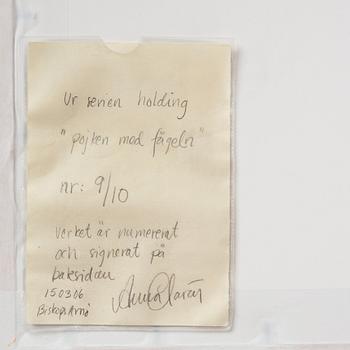 Ur serien holding
"pojken med fågeln"
nr: 9/10
verket är numrerat
och signerat på
baksidan
150306
Biskops Arnö
Anna Clarén